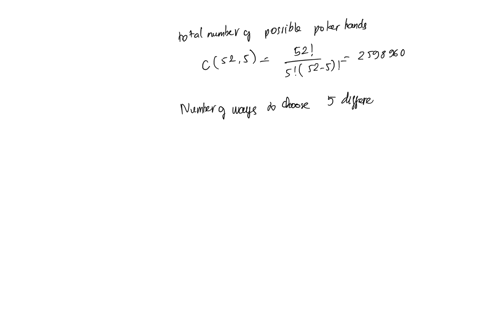 total number of possible poker hands
C(52,5) = 52! / 5!(52-5)! = 2598960
Number of ways to choose 5 differe